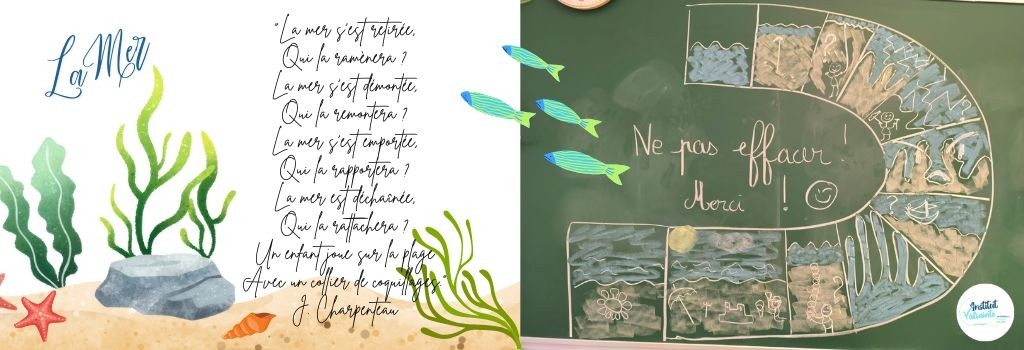 La Mer
"La mer s'est retirée,
Qui la ramènera ?
La mer s'est démontée,
Qui la remontera ?
La mer s'est emportée,
Qui la rapportera ?
La mer est déchaînée,
Qui la rattachera ?
Un enfant joue sur la plage
Avec un collier de coquillages."
J. Charpenteau
Ne pas effacer !
Merci !
?
?
Institut